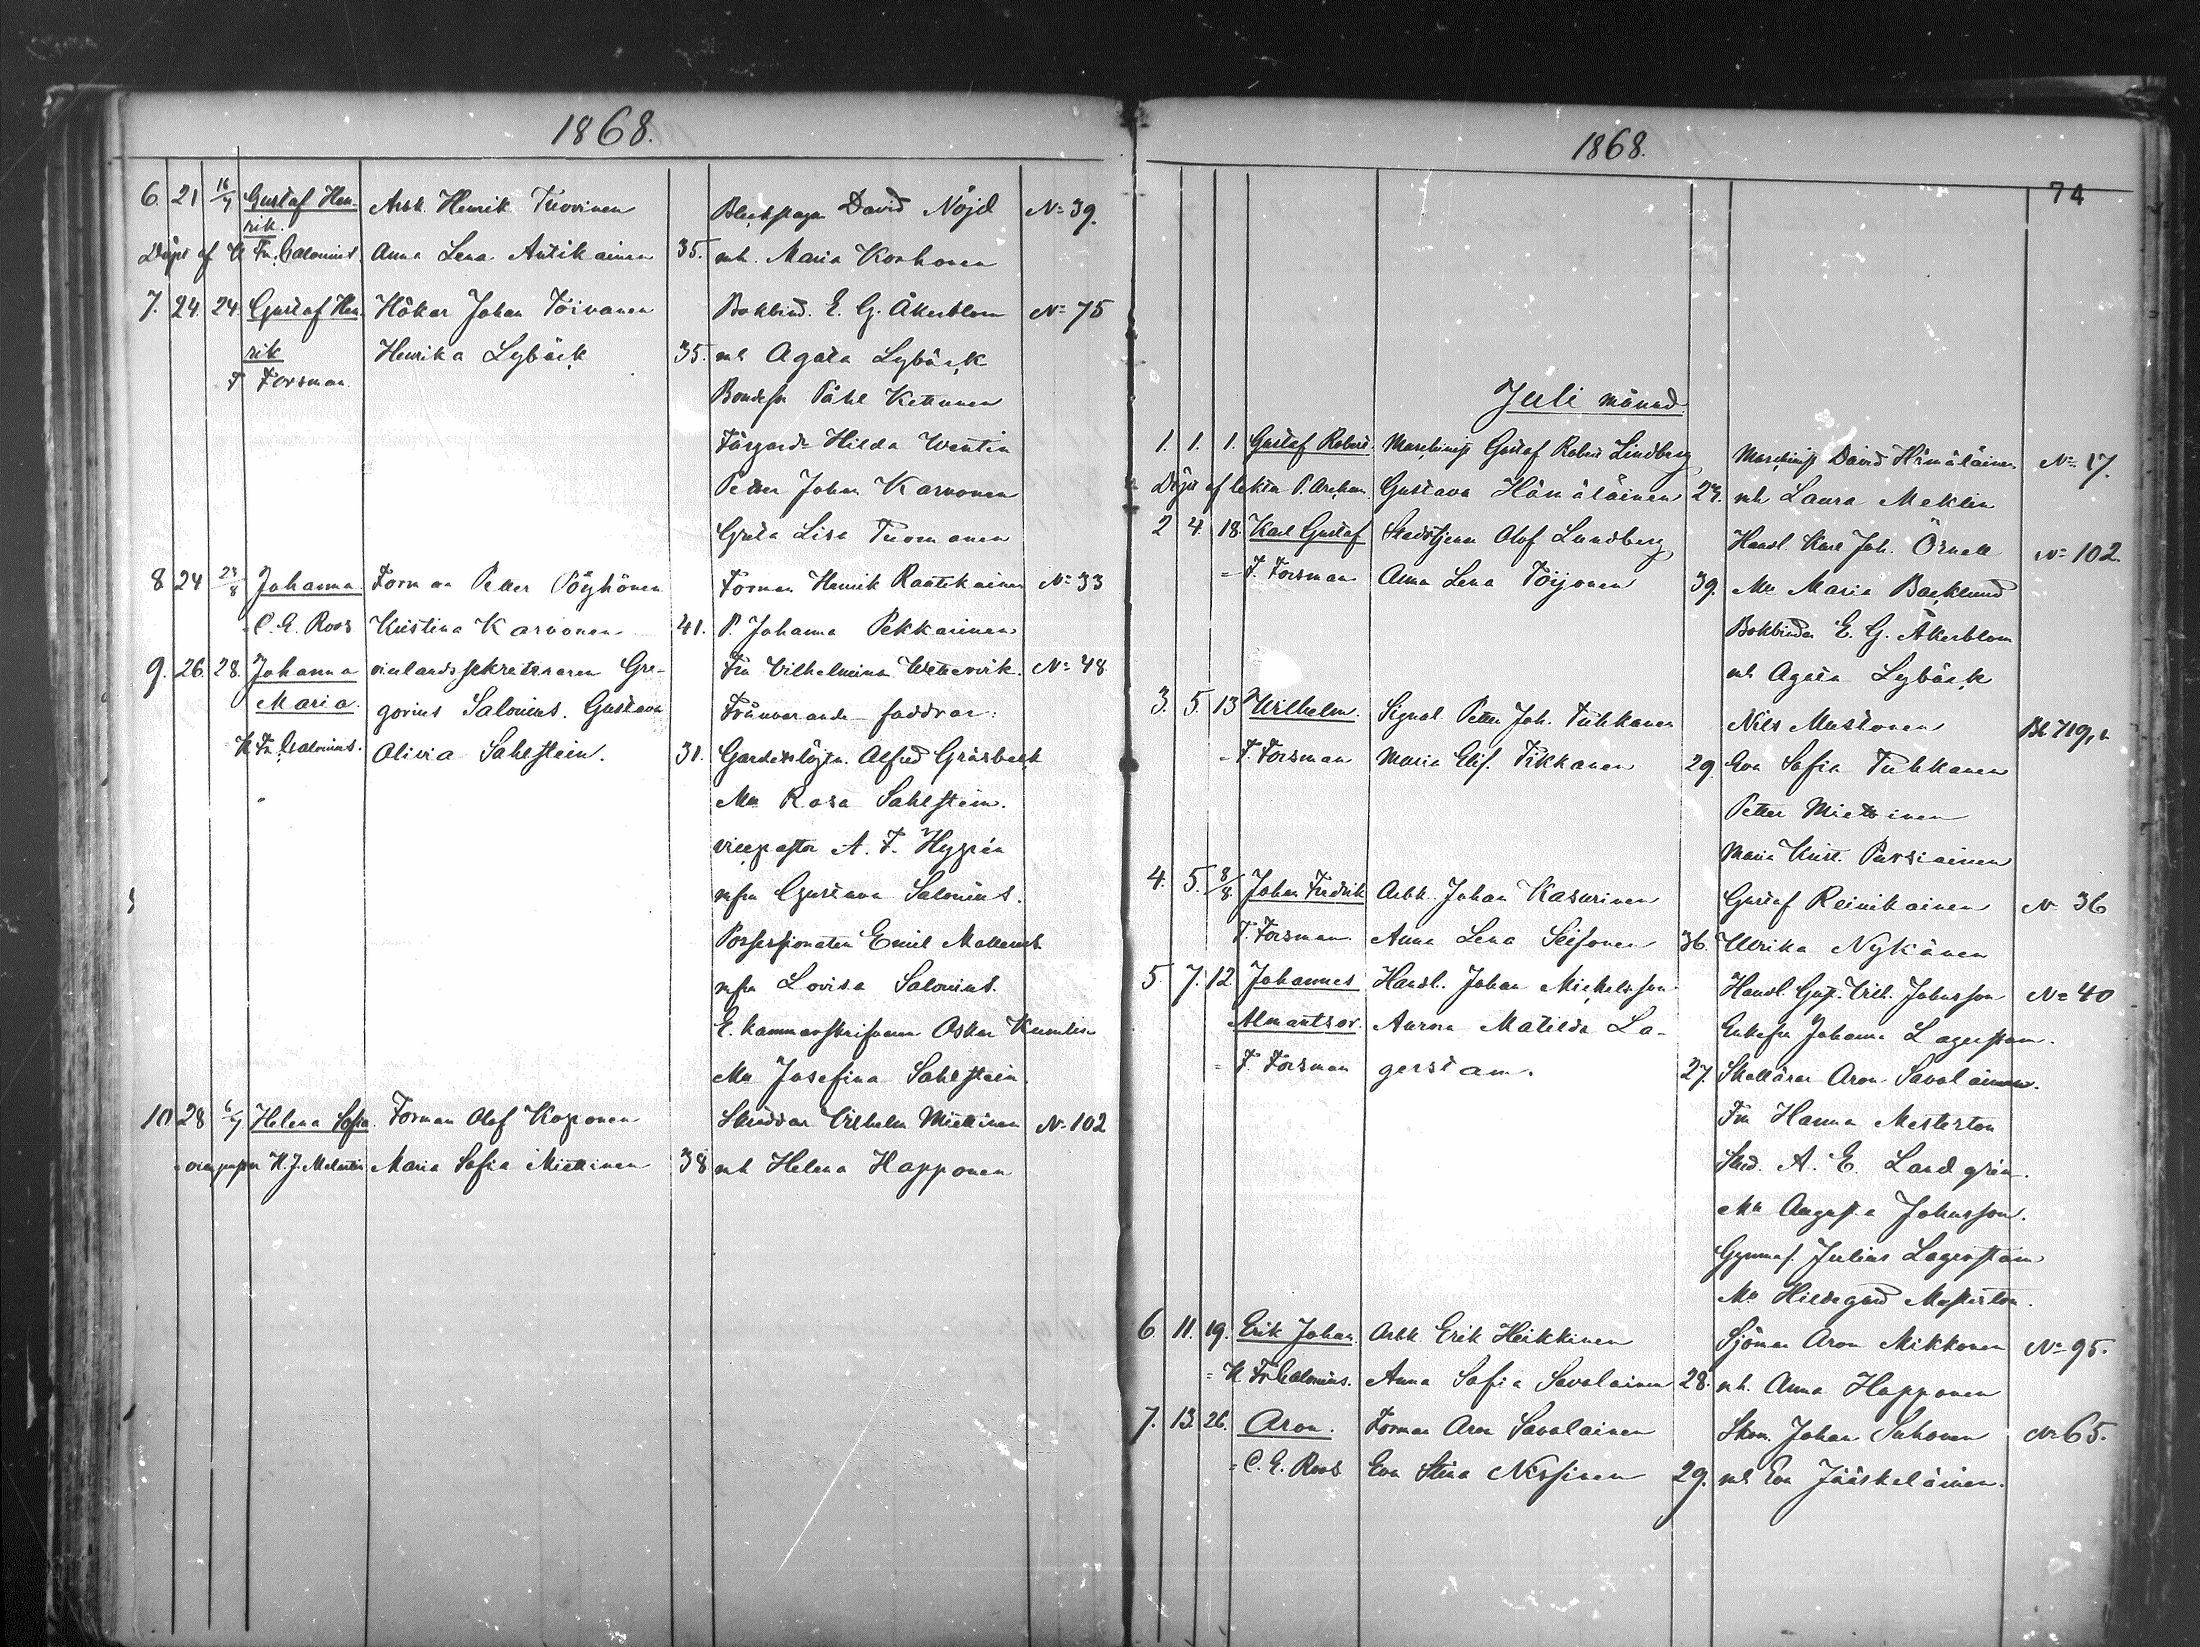 1868.
6. 21 16/7 Gustaf Hen- Arb. Henrik Tuovinen David Nöjd No 39.
rik.
Döpt af K Fr. Calonius. Anna Lena Antikainen 35. mh. Maria Korhonen
7. 24. 24. Gustaf Hen Hökar Johan Toivanen Bokbind. E. G. Åkerblom No 75
rik Henrika Lybäck 35. mh Agata Lybäck
F. Forsman.
Påhl Kettunen
Hilda Wentin
Petter Johan Karvonen
Greta Lisa Tuomonen
8 24 Johanna Forman Petter Pöyhönen Forman Henrik Raatikainen No 33
C. E. Roos Kristina Karvonen 41. P. Johanna Pekkarinen
9. 26. 28. Johanna Gre- Fru Vilhelmina No 48
Maria. gorius Salonius. Gustava Frånvarande faddrar:
K Fr. Calonius. Olivia Sahlstein. 31. Alfred Gråsbeck
Mll Rosa Sahlstein.
vicepastor A. F. Hygrén
Gustava Salonius.
Possessionaten Emil
Lovisa Salonius.
E. kammarskrifvaren Oskar Kumlin
Mll Josefina Sahlstein.
10 28 6/7 Helena Sofia. Forman Olof Koponen Skräddar Vilhelm Miettinen No 102
H. J. Maria Sofia Miettinen 38 mh Helena Happonen
1868.
74
Juli månad.
1. 1. 1. Gustaf Robert. Maschinist Gustaf Robert Lindberg Maschinist David Hämäläinen No 17.
Döpt af Gustava Hämäläinen 23. mh Laura Meklin
2 4. 18. Karl Gustaf Olof Lundberg Handl. Karl Joh. Örnell No 102.
= F. Forsman Anna Lena Törjonen 39. Mll Maria Backlund
Bokbindar E. G. Åkerblom
mh Agata Lybäck
3. 5. 13 Wilhelm. Signal. Petter Joh. Tuhkanen Nils Mustonen
= F. Forsman Maria Elis. Pikkanen 29 Eva Sofia Tuhkanen
Petter Miettinen
Maria Krist. Parsiainen
4. 5. 8/8 Johan Fredrik Arbk. Johan Kasurinen Gustaf Reinikainen No 36
F. Forsman Anna Lena 36. Ulrika Nykänen
5. 7. 12 Johannes Handl. Johan Mickelsson Handl. Gust. Vilh. Johnsson No 40
Almantzor. Aurora Matilda La- Enkefru Johanna Lagerstam.
= F. Forsman gerstam. 27. Aron Savolainen.
Fru Hanna Mesterton
Stud. A. E. Landgrén.
Mll Augusta Johnsson.
Gymnas. Julius Lagerstam
Mll Hildegard Mesterton.
6. 11. 19. Erik Johan Arbk Erik Heikkinen Sjöman Aron Mikkonen No 95.
= K Fr. Calonius. Anna Sofia Savolainen 28. mh. Anna Happonen
7. 13. 26. Aron. Forman Aron Savolainen Johan Suhonen No 65.
= C. E. Roos Eva Stina Nissinen 29. mh Eva Jääskeläinen.